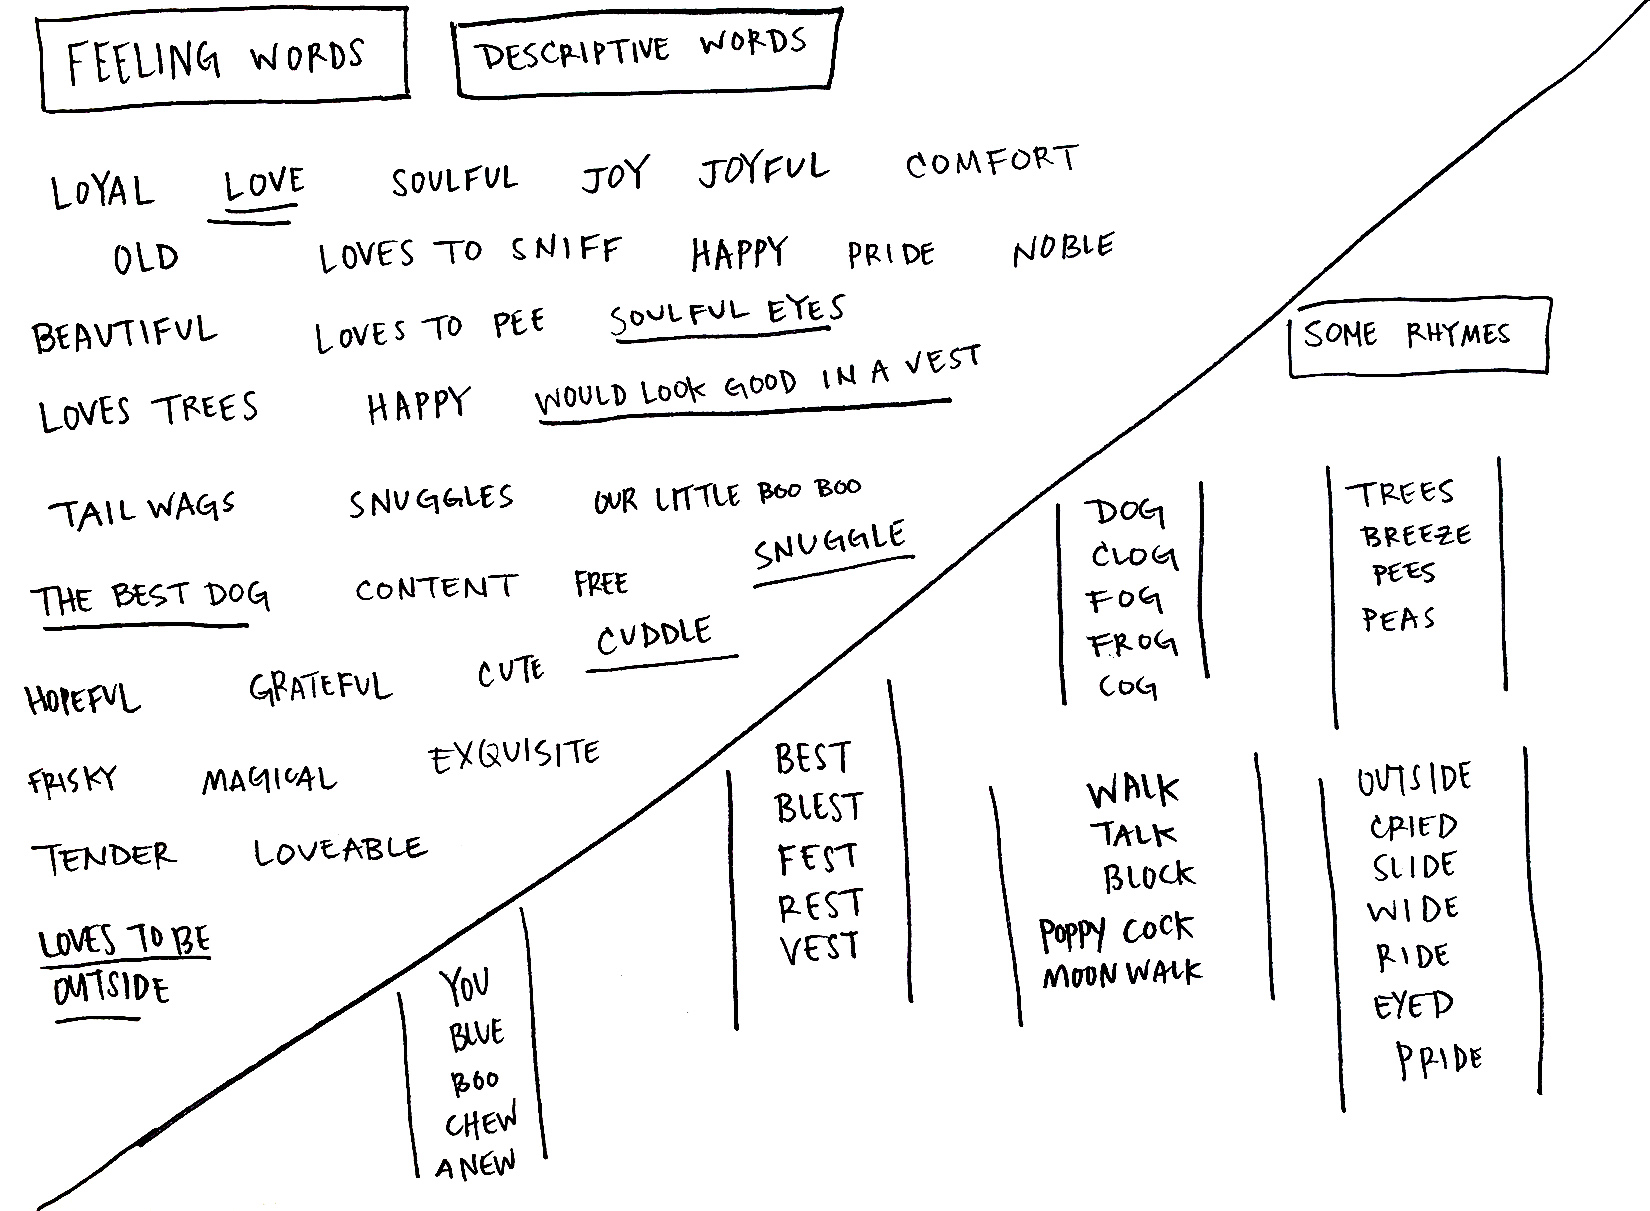 FEELING WORDS
DESCRIPTIVE WORDS
LOYAL LOVE SOULFUL JOY JOYFUL COMFORT
OLD LOVES TO SNIFF HAPPY PRIDE NOBLE
BEAUTIFUL LOVES TO PEE SOULFUL EYES
LOVES TREES HAPPY WOULD LOOK GOOD IN A VEST
TAIL WAGS SNUGGLES OUR LITTLE BOO BOO
SNUGGLE
THE BEST DOG CONTENT FREE
CUDDLE
HOPEFUL GRATEFUL CUTE
FRISKY MAGICAL EXQUISITE
TENDER LOVEABLE
LOVES TO BE
OUTSIDE
SOME RHYMES
DOG
CLOG
FOG
FROG
COG
TREES
BREEZE
PEES
PEAS
YOU
BLUE
BOO
CHEW
ANEW
BEST
BLEST
FEST
REST
VEST
WALK
TALK
BLOCK
POPPY COCK
MOON WALK
OUTSIDE
CRIED
SLIDE
WIDE
RIDE
EYED
PRIDE